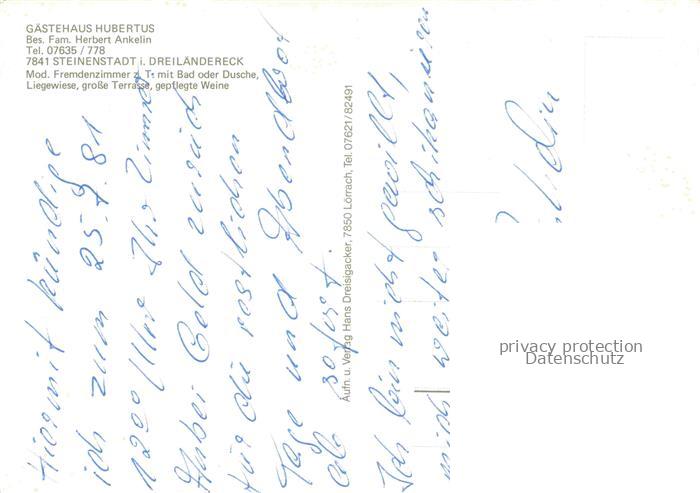 GÄSTEHAUS HUBERTUS
Bes. Fam. Herbert Ankelin
Tel. 07635 / 778
7841 STEINENSTADT i. DREILÄNDERECK
Mod. Fremdenzimmer z. T. mit Bad oder Dusche,
Liegewiese, große Terrasse, gepflegte Weine
Hiermit kündige
ich zum 25. 81
1200 Uhr Ihr Zimmer
Anbei Geld zurück
für die restlichen
Tage und Abendbrot
ab sofort.
Aufn. u. Verlag Hans Dreisigacker, 7850 Lörrach, Tel. 07621/82491
Ich bin nicht gewillt,
mich weiter schikanieren
privacy protection
Datenschutz